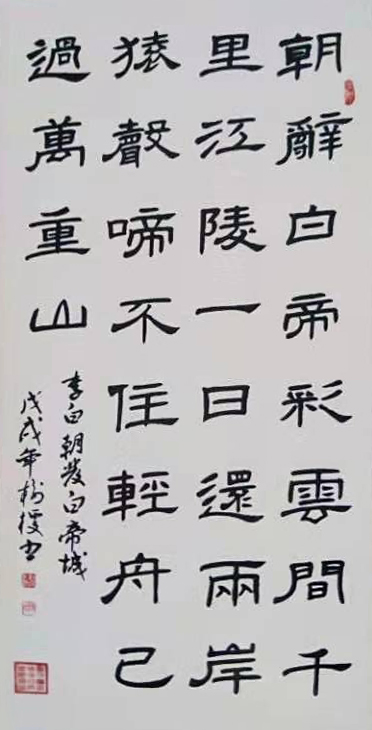 朝辭白帝彩雲間千
里江陵一日還兩岸
猿聲啼不住輕舟已
過萬重山
李白朝發白帝城
戊戌年樹书